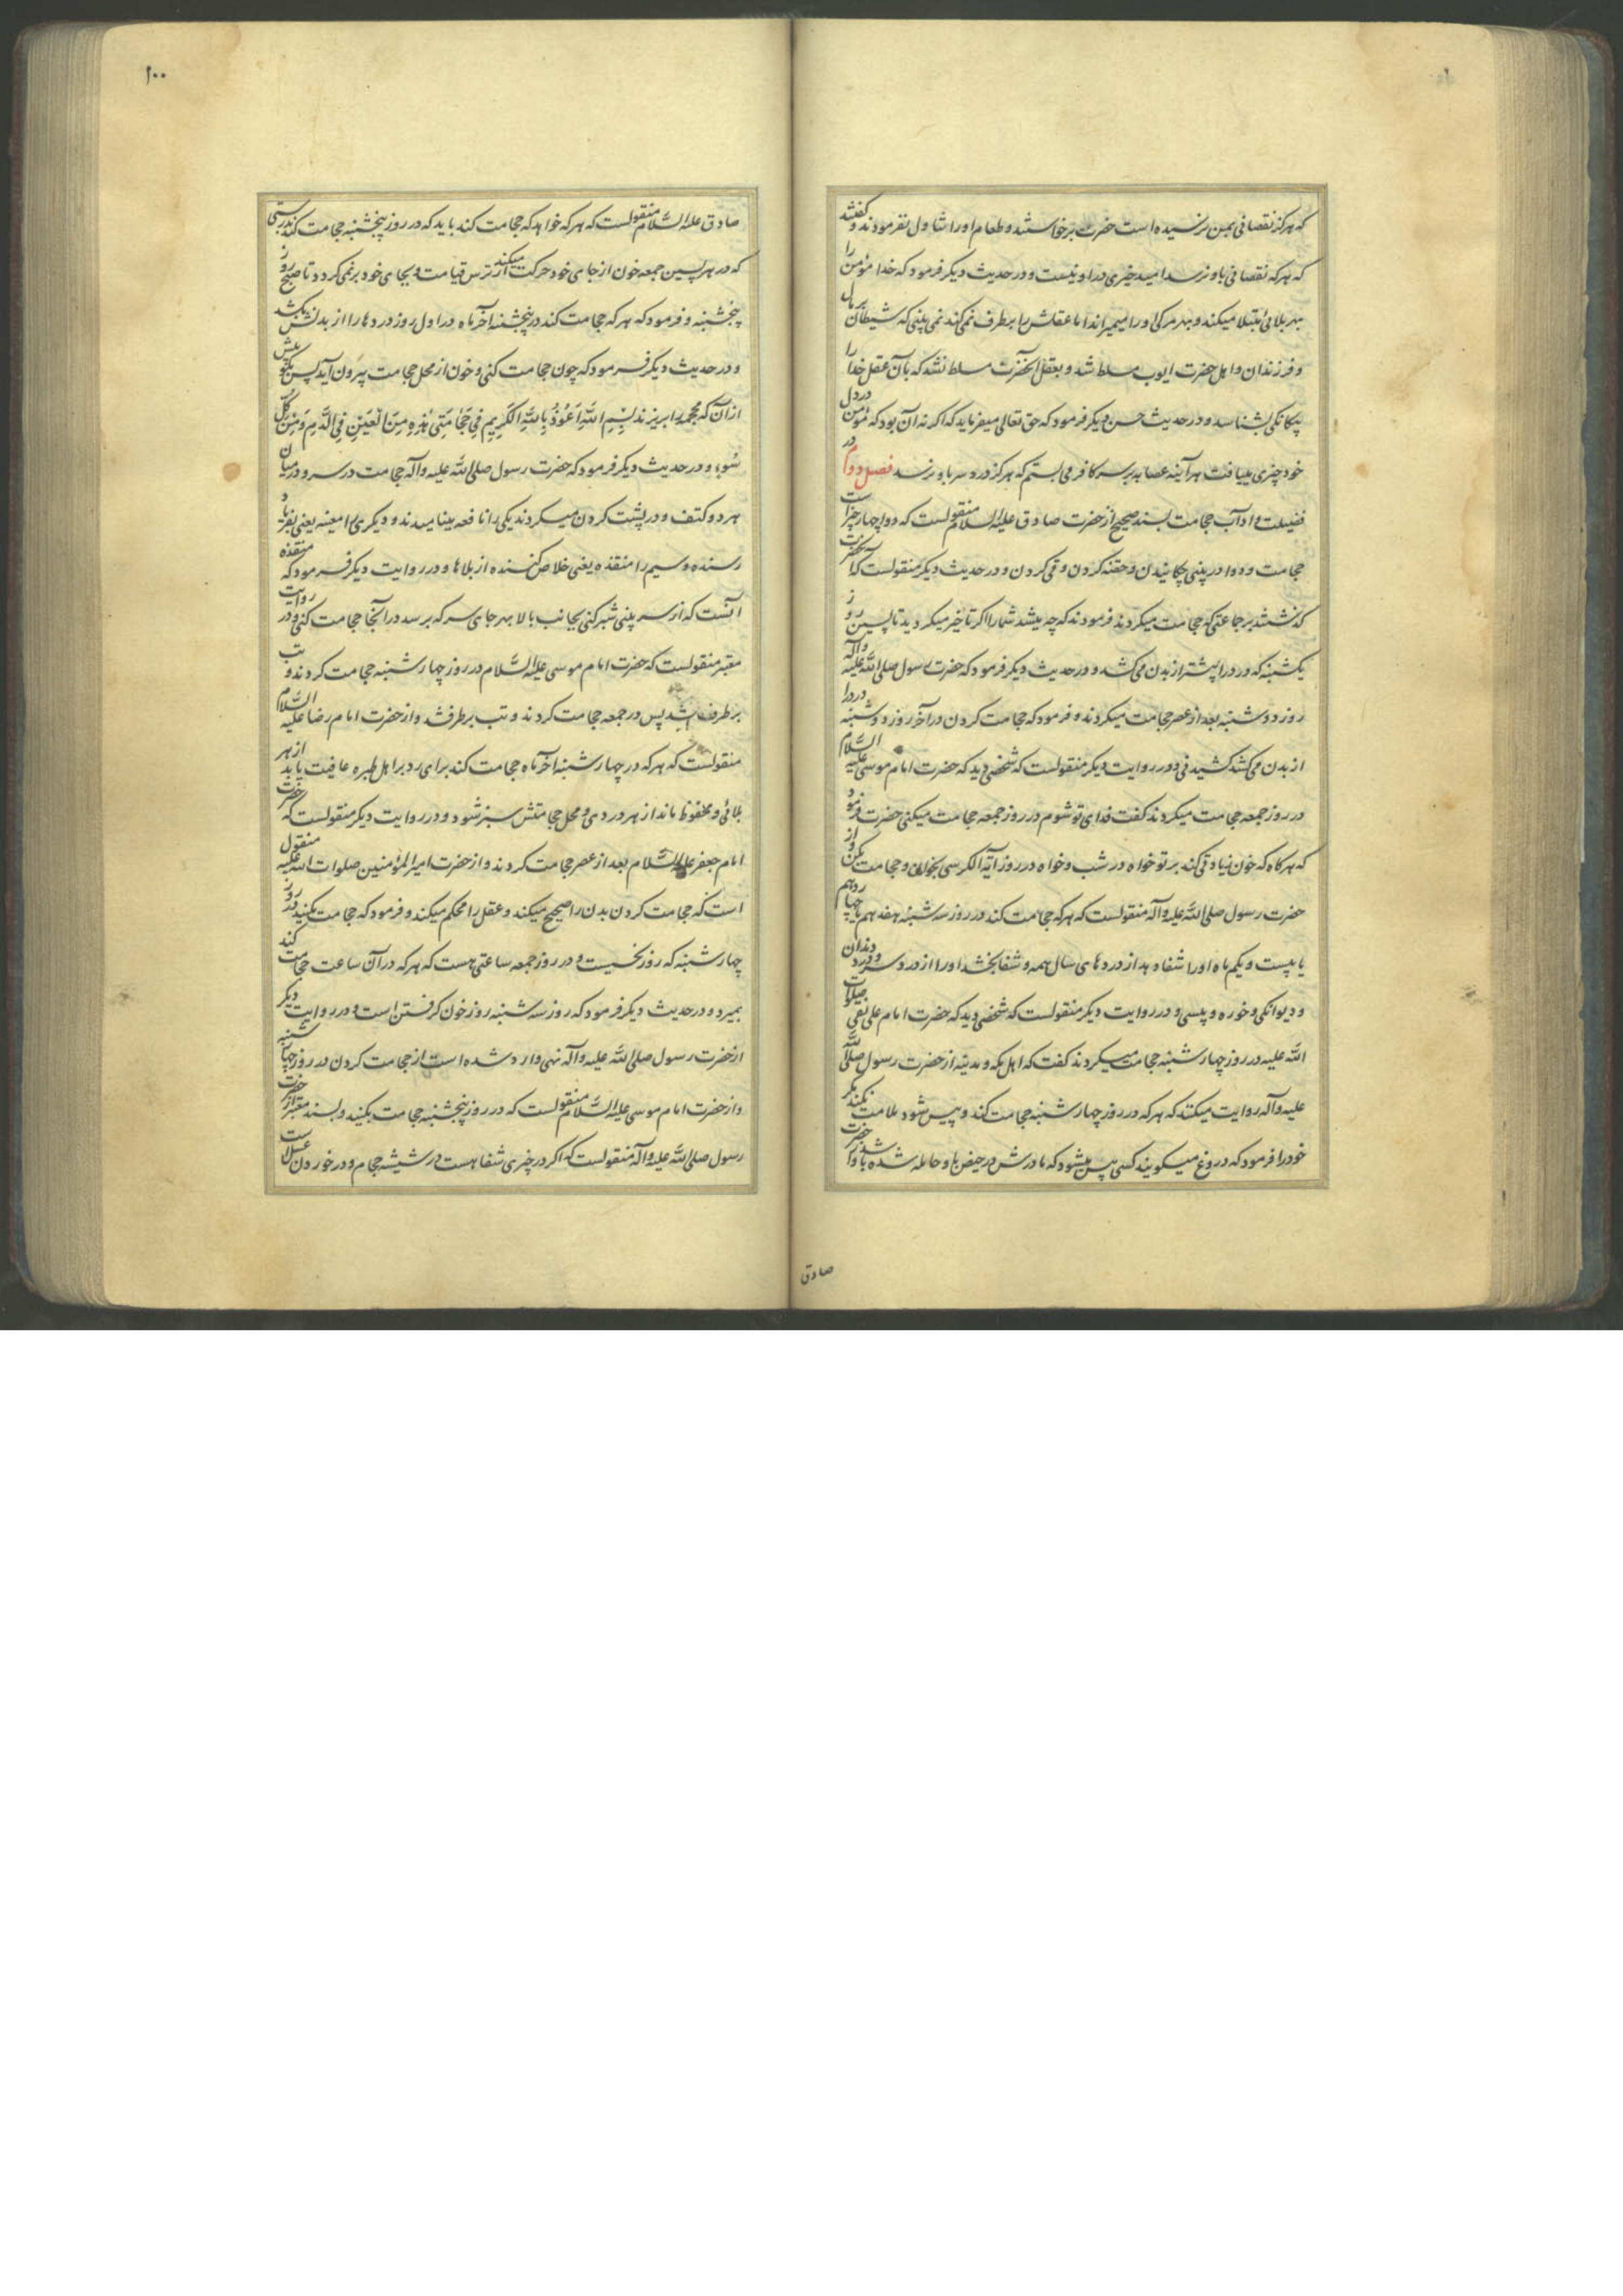 که هرگز نقصانی بمن نرسیده است حضرت برخاستند و طعام او را تناول نفرمودند و گفتند
که هر که نقصانی باو نرسد امید خیری در او نیست و در حدیث دیگر فرمود که خدا مؤمن را
بهر بلائی مبتلا میکند و بهر مرگی او را میمیراند اما عقلش را برطرف نمی‌کند نمی بینی که شیطان بر مال
و فرزندان و اهل حضرت ایوب مسلط شد و بعقل آنحضرت مسلط نشد که بآن عقل خدا را
بیکانکی بشناسد و در حدیث حسن دیگر فرمود که حق تعالی میفرماید که اگر نه آن بود که مؤمن در دل
خود چیزی مییافت هر آینه عصابه بر سر کافر می بستم که هرگز درد سر باو نرسد فصل دوم در
فضیلت و آداب حجامت بسند صحیح از حضرت صادق علیه السلام منقولست که دوا چهار چیز است
حجامت و دوا در بینی چکانیدن و حقنه کردن و قی کردن و در حدیث دیگر منقولست که آنحضرت
گذشتند بر جماعتی که حجامت میکردند فرمودند که چه میشد شما را اگر تاخیر میکردید تا پسین روز
یکشنبه که درد را بیشتر از بدن می‌کشد و در حدیث دیگر فرمود که حضرت رسول صلی الله علیه و آله
روز دوشنبه بعد از عصر حجامت میکردند و فرمود که حجامت کردن در آخر روز دوشنبه درد را
از بدن می‌کشد کشیدنی و در روایت دیگر منقولست که شخصی دید که حضرت امام موسی علیه السلام
در روز جمعه حجامت میکردند گفت فدای تو شوم در روز جمعه حجامت میکنی حضرت فرمود
که هرگاه که خون زیادتی کند بر تو خواه در شب و خواه در روز آیة الکرسی بخوان و حجامت بکن و از
حضرت رسول صلی الله علیه و آله منقولست که هر که حجامت کند در روز سه شنبه هفدهم یا چهاردهم
یا بیست و یکم ماه او را شفا دهد از دردهای سال همه و شفا بخشد او را از درد سر و درد دندان
و دیوانگی و خوره و پیسی و در روایت دیگر منقولست که شخصی دید که حضرت امام علی نقی صلوات
الله علیه در روز چهارشنبه حجامت میکردند گفت که اهل مکه و مدینه از حضرت رسول صلی الله
علیه و آله روایت میکنند که هر که در روز چهارشنبه حجامت کند و پیس شود ملامت نکند مگر
خود را فرمود که دروغ میگویند کسی پیس میشود که مادرش در حیض باو حامله شده باشد و از حضرت
صادق
۱۰۰
صادق علیه السلام منقولست که هر که خواهد که حجامت کند باید که در روز پنجشنبه حجامت کند بدرستی
که در هر پسین جمعه خون از جای خود حرکت میکند از ترس قیامت و بجای خود برنمی‌گردد تا صبح روز
پنجشنبه و فرمود که هر که حجامت کند در پنجشنبه آخر ماه در اول روز دردها را از بدنش بکشد
و در حدیث دیگر فرمود که چون حجامت کنی و خون از محل حجامت بیرون آید پس بگو پیش
از آن که محجمه را بریزند بِسْمِ اللّهِ اَعُوذُ بِاللّهِ الْکَرِیمِ فِی حَجَامَتِی هٰذِهِ مِنَ الْعَیْنِ فِی الدَّمِ وَمِنْ کُلِّ
سُوءٍ و در حدیث دیگر فرمود که حضرت رسول صلی الله علیه و آله حجامت در سر و در میان
هر دو کتف و در پشت کردن میکردند یکی را نافعه مینامیدند و دیگری را مغیثه یعنی بفریاد
رسنده و سیم را منقذه یعنی خلاص کننده از بلاها و در روایت دیگر فرمود که منقذه
آنست که از سر بینی شبر کنی بجانب بالا بهر جای سر که برسد در آنجا حجامت کنی و در روایت
معتبر منقولست که حضرت امام موسی علیه السلام در روز چهارشنبه حجامت کردند و تب
برطرف نشد پس در جمعه حجامت کردند و تب برطرف شد و از حضرت امام رضا علیه السلام
منقولست که هر که در چهارشنبه آخر ماه حجامت کند برای رد بر اهل طیره عافیت یابد از هر
بلائی و محفوظ ماند از هر دردی و محل حجامتش سبز نشود و در روایت دیگر منقولست که حضرت
امام جعفر علیه السلام بعد از عصر حجامت کردند و از حضرت امیرالمؤمنین صلوات الله علیه منقول
است که حجامت کردن بدن را صحیح میکند و عقل را محکم میکند و فرمود که حجامت مکنید در روز
چهارشنبه که روز نحسیست و در روز جمعه ساعتی هست که هر که در آن ساعت حجامت کند
بمیرد و در حدیث دیگر فرمود که روز سه شنبه روز خون گرفتن است و در روایت دیگر
از حضرت رسول صلی الله علیه و آله نهی وارد شده است از حجامت کردن در روز چهارشنبه
و از حضرت امام موسی علیه السلام منقولست که در روز پنجشنبه حجامت بکنید و بسند معتبر از حضرت
رسول صلی الله علیه و آله منقولست که اگر در چیزی شفا هست در شیشه حجام و در خوردن عسل است